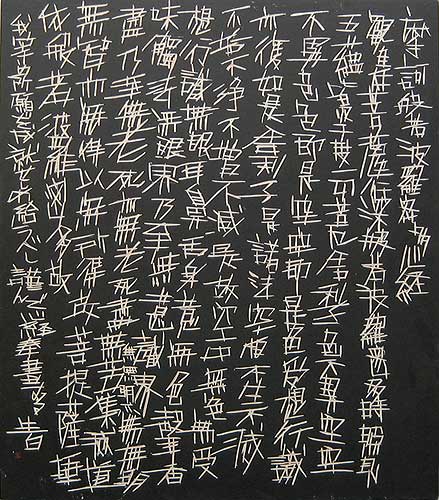 摩訶般若波羅蜜多心経
観自在菩薩行深般若波羅蜜多時照見
五蘊皆空度一切苦厄舎利子色不異空空
不異色色即是空空即是色受想行識
亦復如是舎利子是諸法空相不生不滅
不垢不浄不増不減是故空中無色無受
想行識無眼耳鼻舌身意無色声香
味触法無眼界乃至無意識界無無明亦無無明
盡乃至無老死亦無老死盡無苦集滅道
無智亦無得以無所得故菩提薩埵
依般若波羅蜜多故
我等所願成就